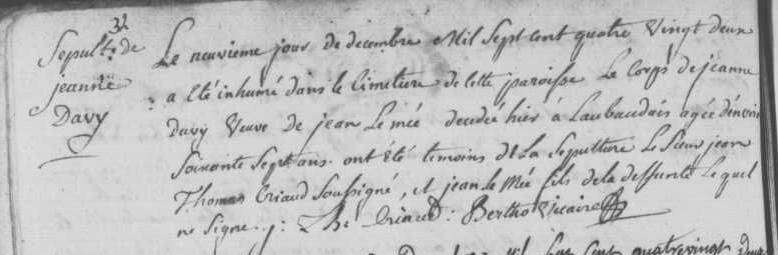 32
Sepult. de
jeanne
Davy
Le neuvieme jour de decembre Mil Sept cent quatre Vingt deux
a Eté inhumé dans le Cimeture de cette paroisse Le Corps de jeanne
Davy Veuve de jean Le mée decedée hier à Laubaudais agée d'environ
Soixante Sept ans. ont été temoins de La Sepulture Le Sieur jean
Thomas Criaud Soussigné, et jean le Mée fils de la deffunte Le quel
ne Signe. Th. Criaud : Bertho Vicaire
quatrevingt deux